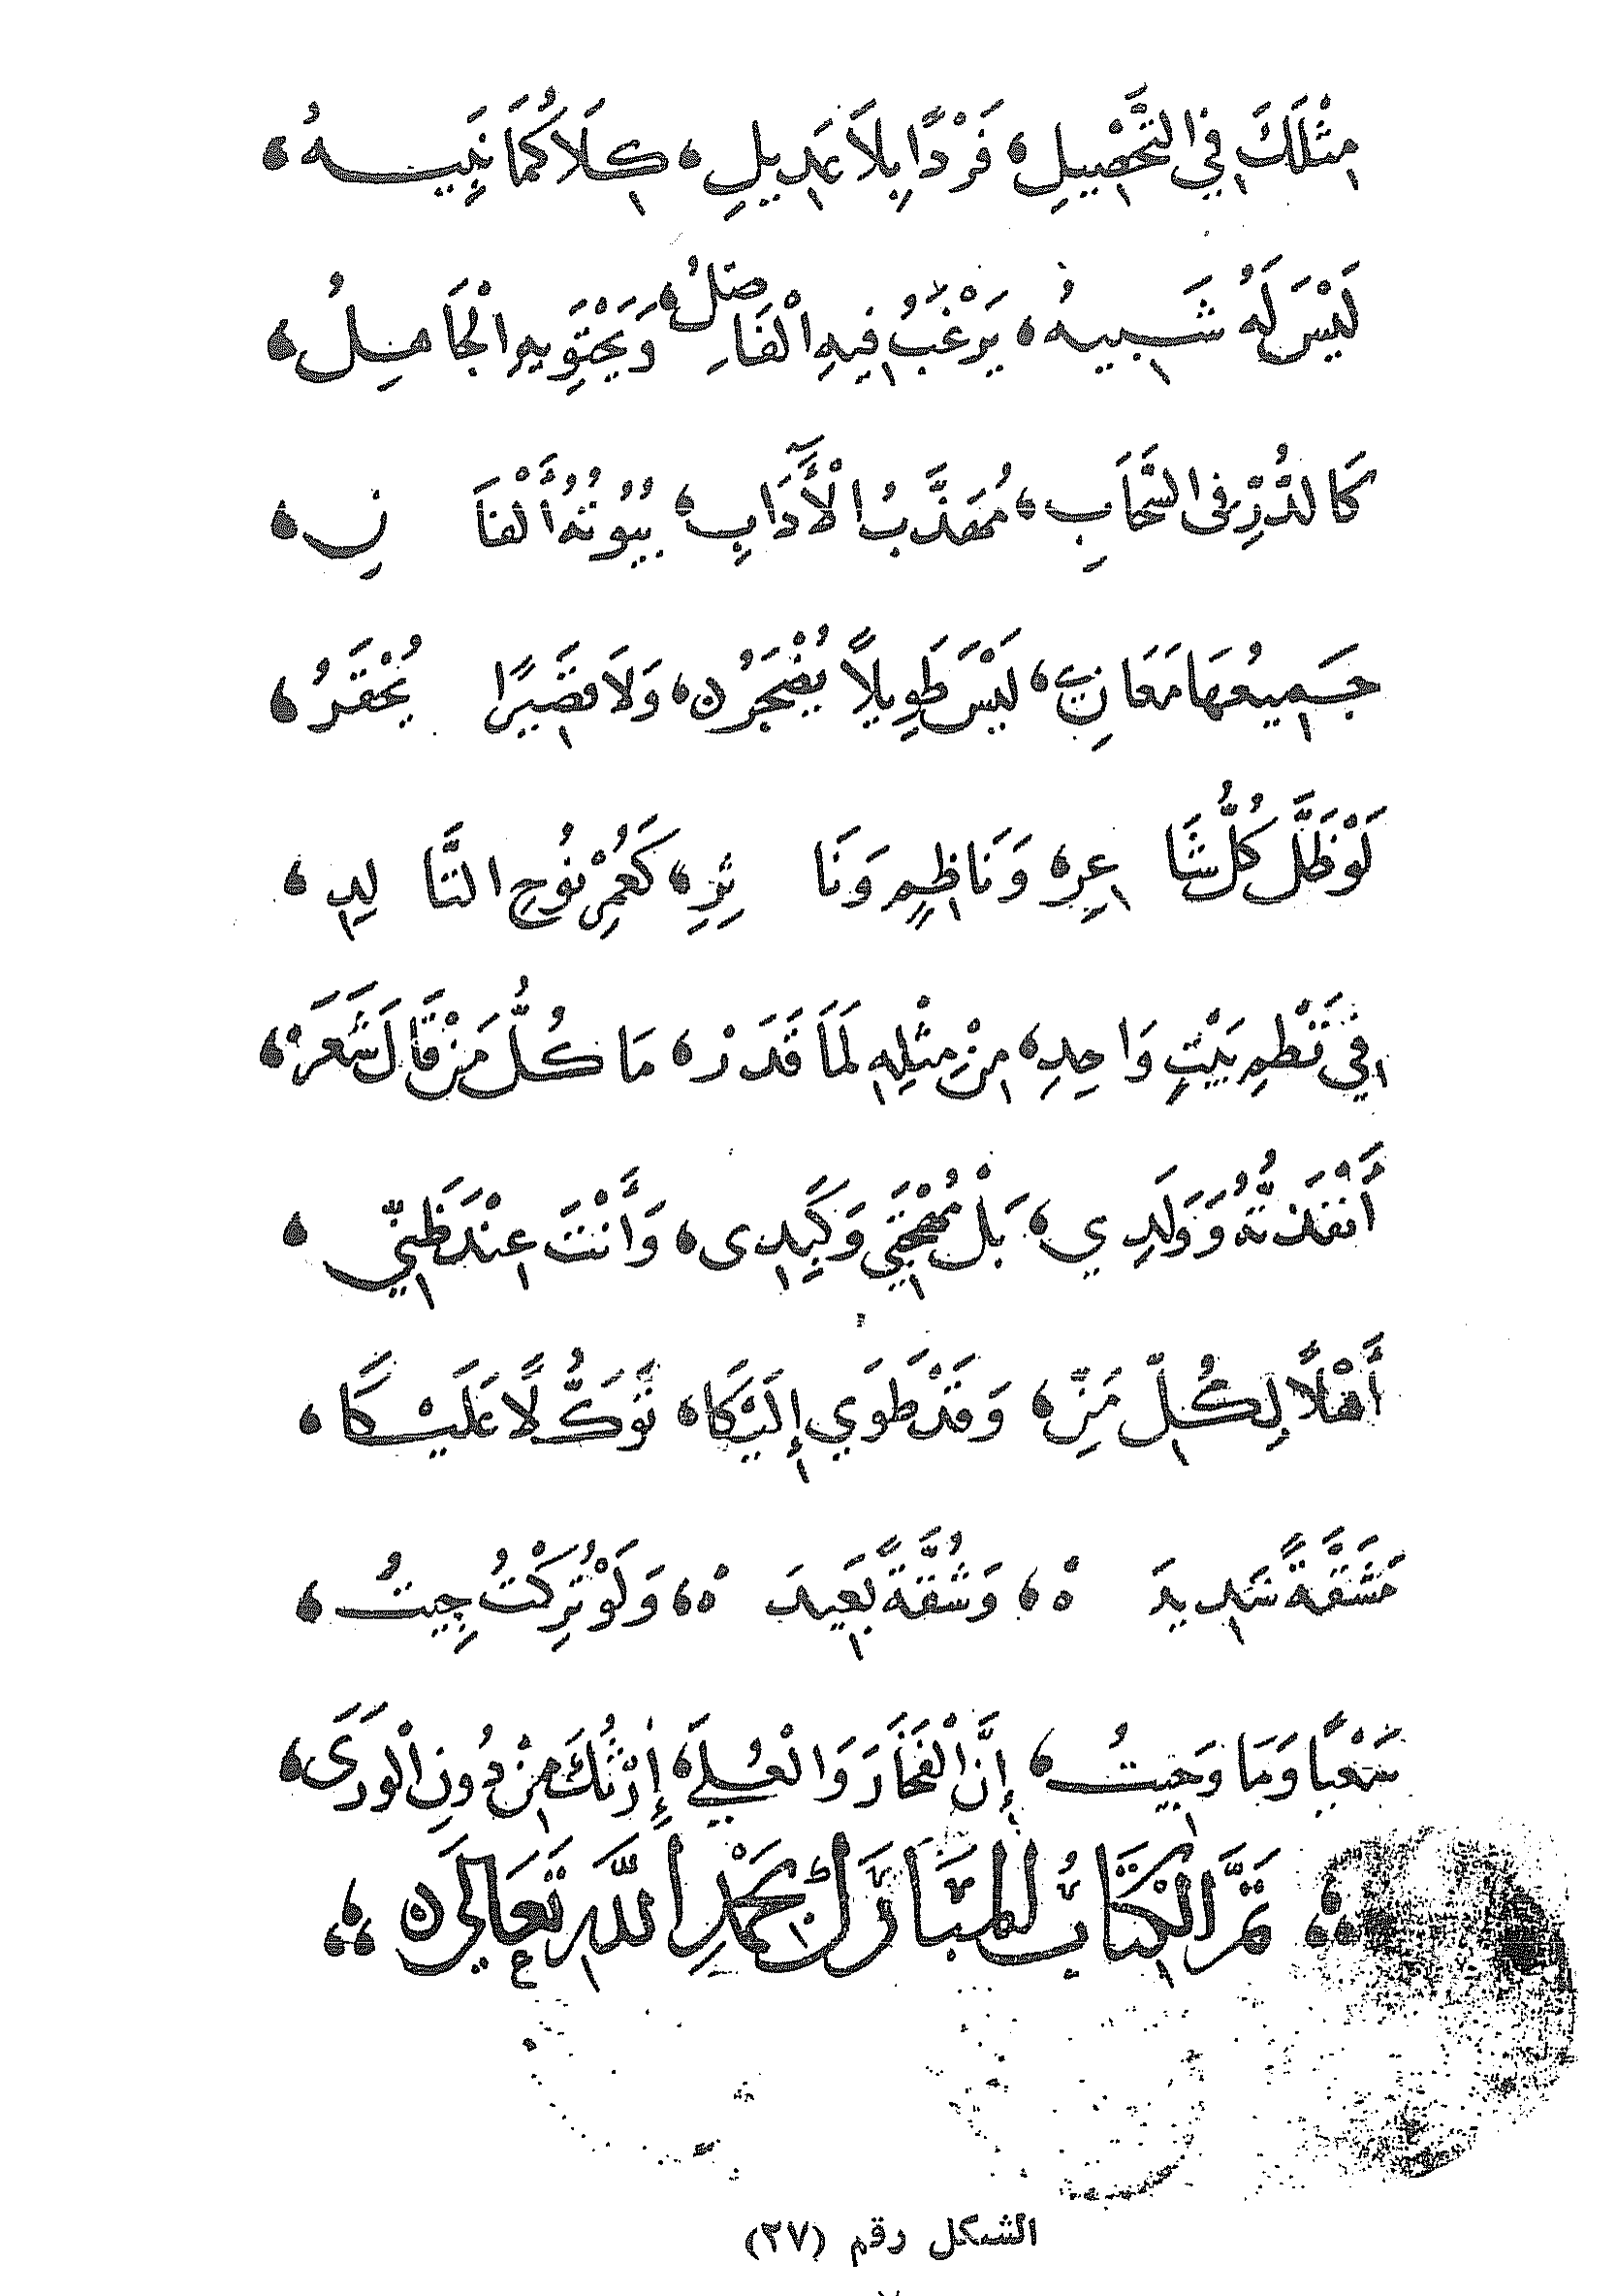 مِثْلَكَ فِي التَّحْصِيلِ، فَرْدًا بِلَا عَدِيلِ، كِلَاكُمَا نَبِيهُ،
لَيْسَ لَهُ شَبِيهُ، يَرْغَبُ فِيهِ الْفَاضِلُ، وَيَحْتَوِيهِ الْجَاهِلُ،
كَالدُّرِّ فِى السَّحَابِ، مُهَذَّبُ الْأَدَابِ، بُيُوتُهُ أَلْفَانِ،
جَمِيعُهَا مَعَانِي، لَيْسَ طَوِيلًا يُضْجِرُ، وَلَا قَصِيرًا يُحْقَرُ،
لَوْ ظَلَّ كُلُّ شَاعِرِ، وَنَاظِمٍ وَنَاثِرِ، كَعُمْرِ نُوحِ التَّالِدِ،
فِي نَظْمِ بَيْتٍ وَاحِدِ، مِنْ مِثْلِهِ لَمَا قَدَرْ، مَا كُلُّ مَنْ قَالَ شَعَرْ،
أَنْفَذْتُهُ وَوَلَدِي، بَلْ مُهْجَتِي وَكَبِدِى، وَأَنْتَ عِنْدَ ظَنِّي،
أَهْلًا لِكُلِّ مَنِّ، وَقَدْ طَوَي إِلَيْكَا، تَوَكُّلًا عَلَيْكَا،
مَشَقَّةً شَدِيدَه، وَشُقَّةً بَعِيدَه، وَلَوْ تُرِكْتُ جِيتُ،
سَعْيًا وَمَا وَجِيتُ، إِنَّ الْفَخَارَ وَالْعُلَي، إِرْثُكَ مِنْ دُونِ الْوَرَى،
تَمَّ الْكِتَابُ الْمُبَارَكُ بِحَمْدِ اللَّهِ تَعَالَى
الشكل رقم (٢٧)